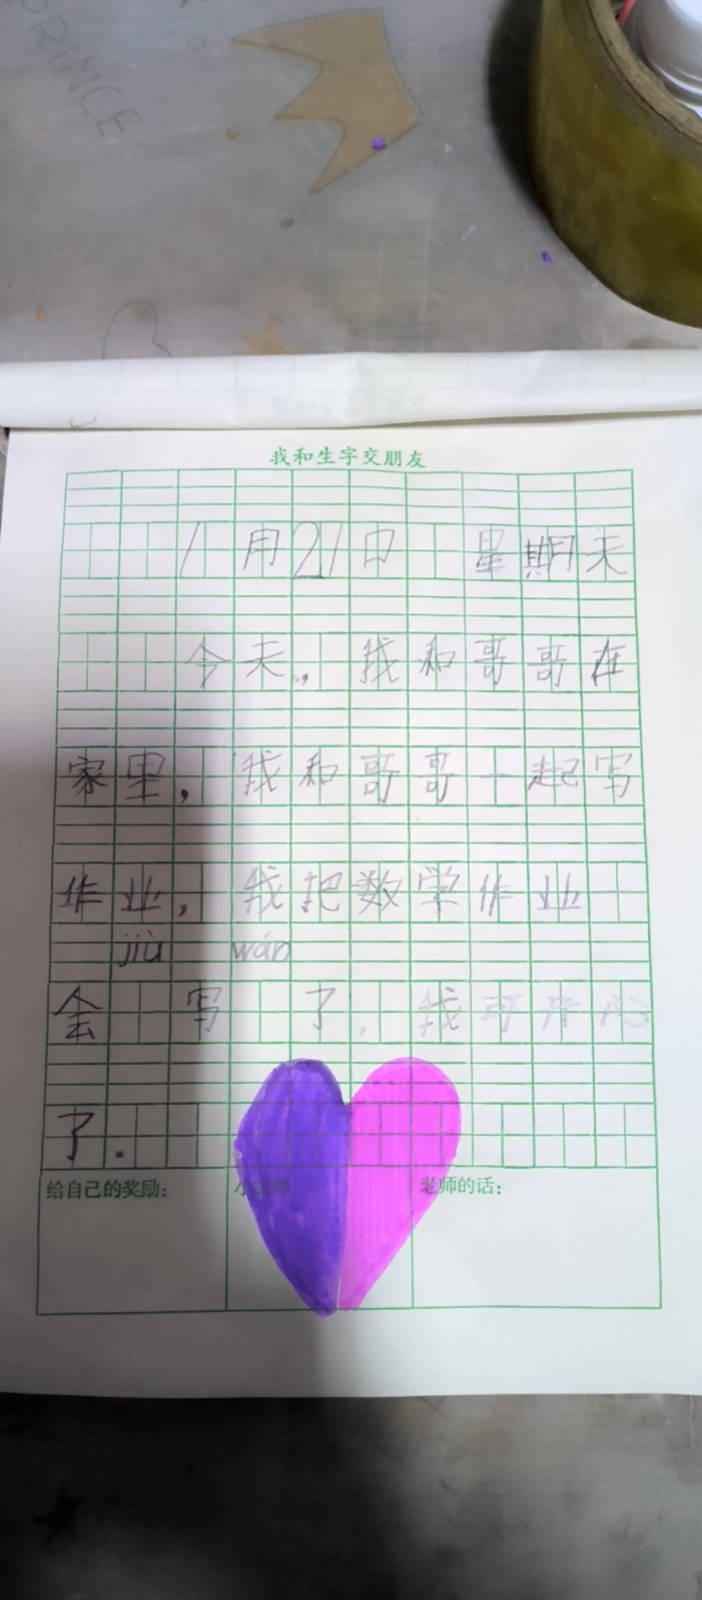 PRINCE
我和生字交朋友
1月21日 星期天
今天,我和哥哥在
家里,我和哥哥一起写
作业,我把数学作业
jiù wán
会 写 了,我可开心
了.
给自己的奖励: 老师的话: